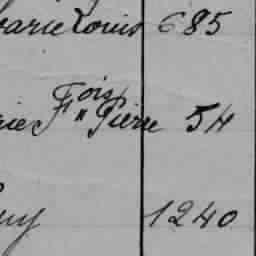 Marie Louis 685
rie Fois" Pierre 54
uy 1240